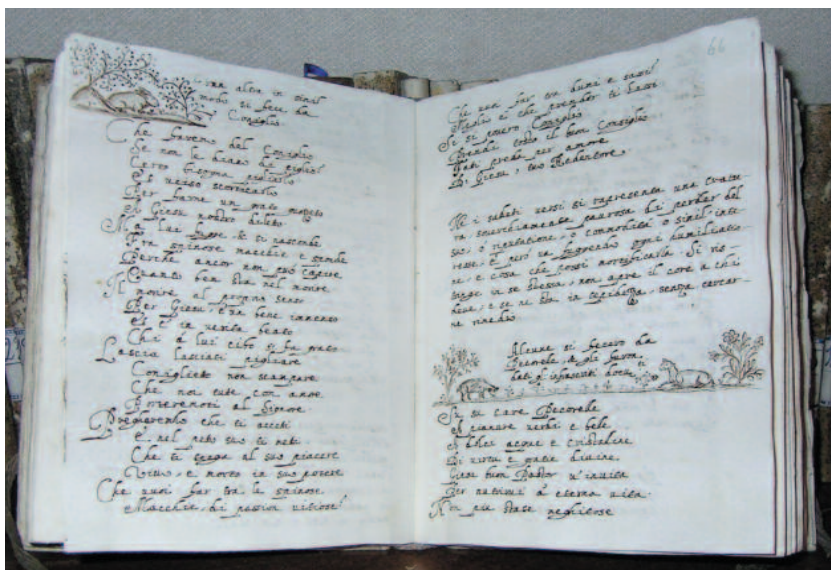 una altra in simil
modo si fece da
Coniglio
Che faremo del Coniglio
Se non le diamo de piglio
Certo bisogna pigliarlo
Et verso scorticarlo
Per farne un grato
A Giesu nostro diletto
Ma lui fugge, et si nasconde
Fra spinose macchie e
Perche ancor non può capire
Quanto ben sta nel morire
Il morire al proprio senso
Per Giesu, è un bene immenso
Et è in verità beato
Chi à lui cibo si fa grato
Lascia lasciati pigliare
Coniglietto non scampare
Che noi tutte con amore
Porteremoti al Signore
Pregheremlo che ti accetti
E nel petto suo ti metti
Che ti al suo piacere
Vivo, e morto in suo potere
Che vuoi far tra le spinose
Macchie, di passion vitiose
66
Che vuoi far tra dumi e sassi
Meglio è che prender ti lassi
Su su povero Coniglio
Prendi tosto il bon Consiglio
Fatti preda per amore
Di Giesu, tuo Redentore
Ne i sudetti versi si rapresenta una creatu-
ra sourchiamente paurosa di perder del
suo, ò riputatione, ò commodità ò simil inte-
resse, e però va fugendo ogni humiliatio-
ne, e cosa che possi mortificarla. Si ris-
tringe in se stessa, non apre il core a chi
deve, e se ne sta in tepidezza, senza cercar-
ne rimedio
Alcune si fecero da
Pecorelle, et gli furon
dati li infrascritti
Su su care Pecorelle
A pianure verdi e belle
A dolci acque e cristalline
Di virtu e gratie divine
Giesu buon Pastor v'invita
Per nutrirvi à eterna vita
Non più state neghitose